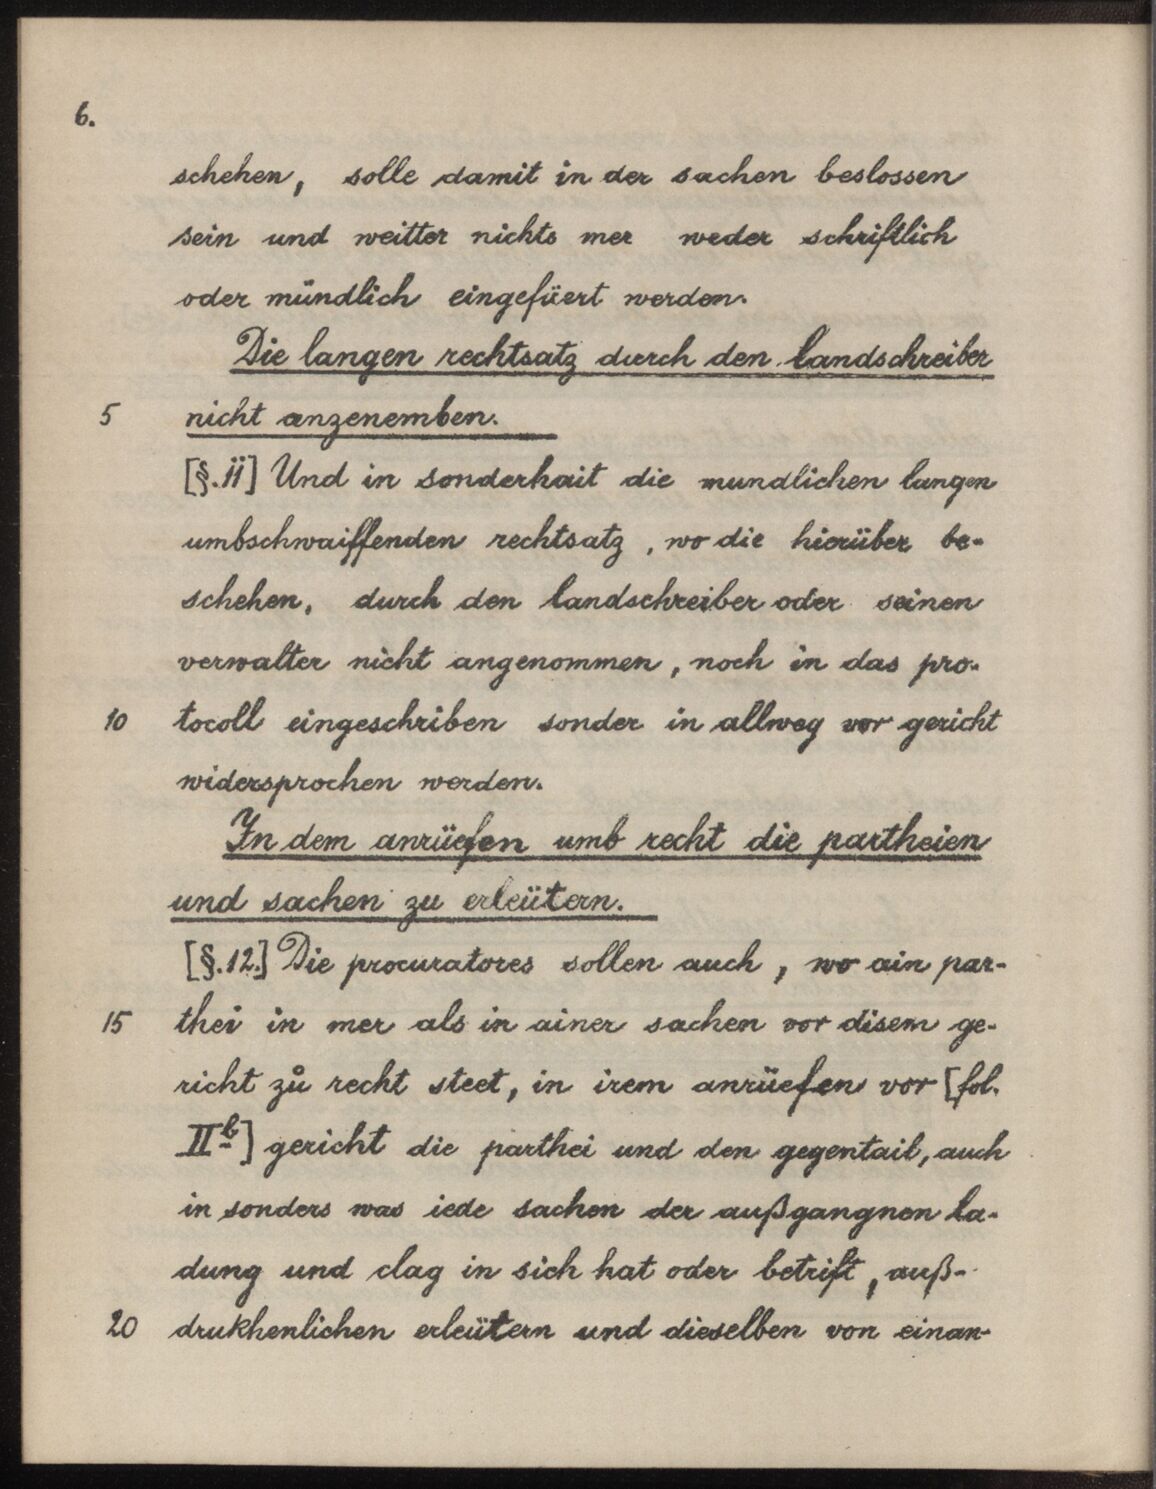 6.
schehen, solle damit in der sachen beslossen
sein und weitter nichts mer weder schriftlich
oder mündlich eingefüert werden.
Die langen rechtsatz durch den landschreiber
5 nicht anzenemben.
[§.11] Und in sonderhait die mundlichen langen
umbschwaiffenden rechtsatz, wo die hierüber be-
schehen, durch den landschreiber oder seinen
verwalter nicht angenommen, noch in das pro-
10 tocoll eingeschriben sonder in allweg vor gericht
widersprochen werden.
In dem anrüefen umb recht die partheien
und sachen zu erleütern.
[§.12.] Die procuratores sollen auch, wo ain par-
15 thei in mer als in ainer sachen vor disem ge-
richt zů recht steet, in irem anrüefen vor [fol.
IIb] gericht die parthei und den gegentail, auch
in sonders was iede sachen der außgangnen la-
dung und clag in sich hat oder betrift, auß-
20 drukhenlichen erleütern und dieselben von einan-